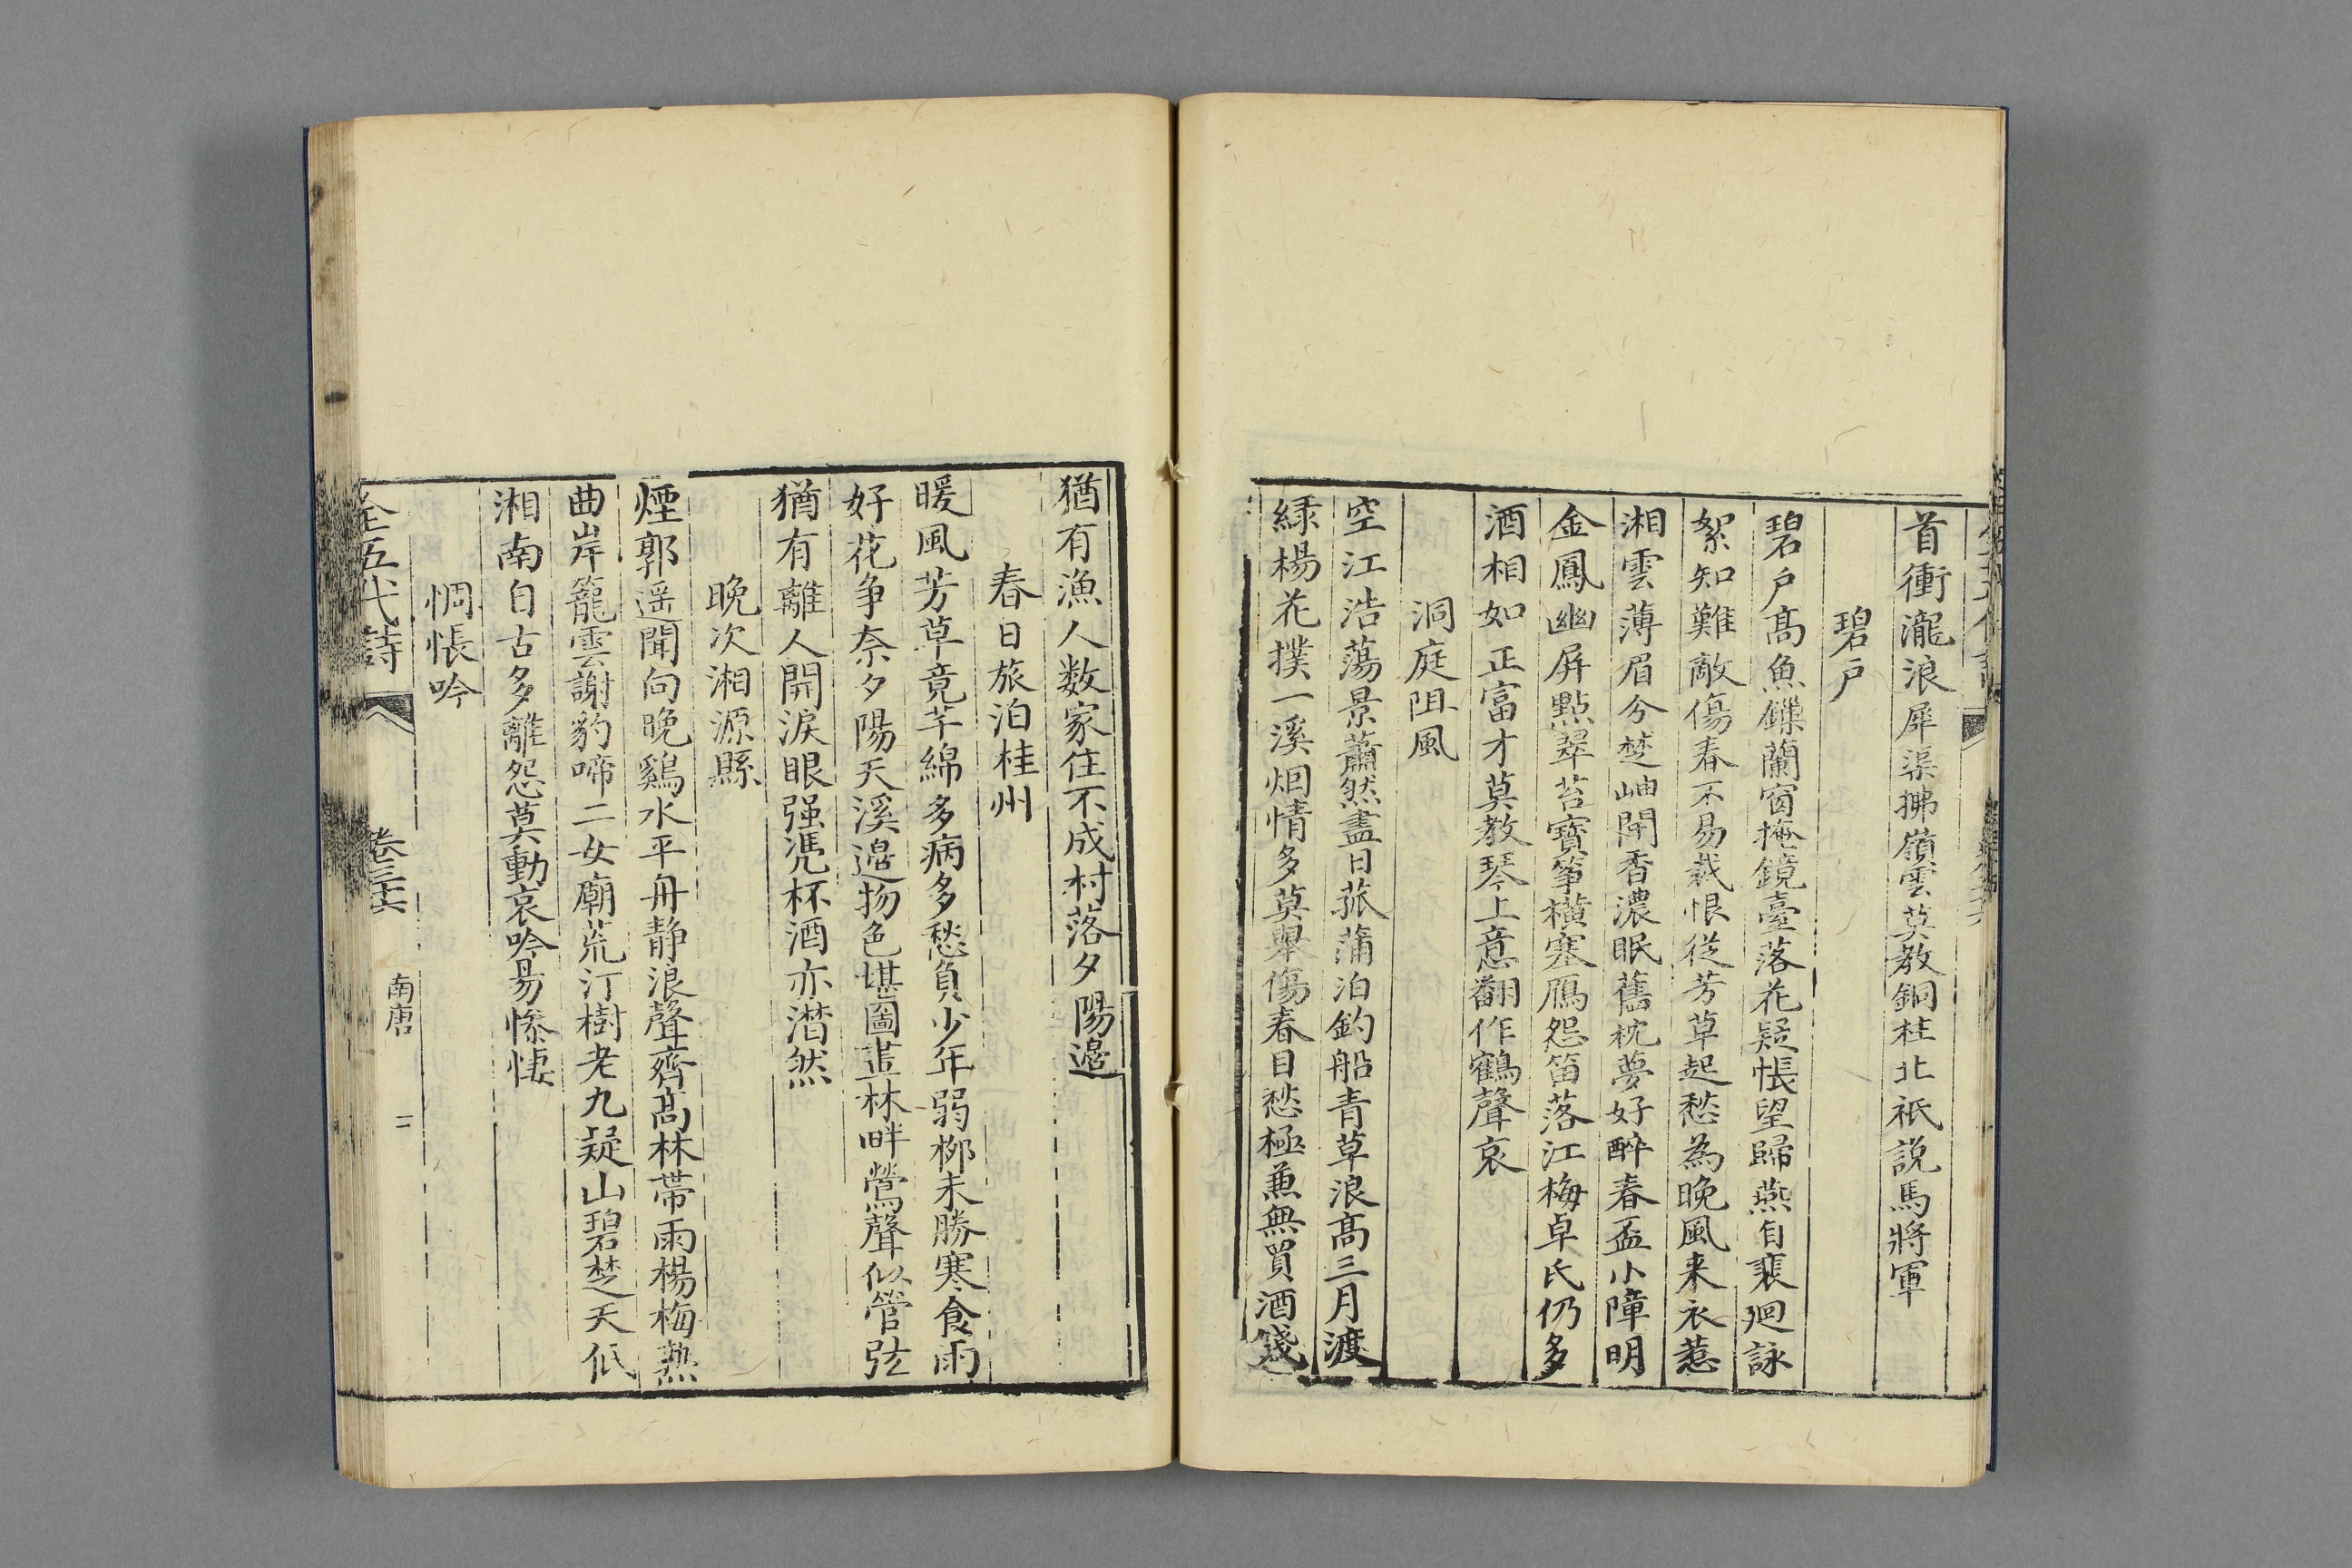 首衝瀧浪犀渠拂嶺雲莫教銅柱北祇説馬將軍
碧戸
碧戸髙魚鏁蘭窗掩鏡臺落花疑悵望歸燕自裴廻詠
絮知難敵傷春不易裁恨從芳草起愁為晩風来衣惹
湘雲薄眉分楚岫開香濃眠舊枕夢好醉春盃小障明
金鳳幽屏點翠苔寶筝横塞鴈怨笛落江梅卓氏仍多
酒相如正富才莫教琴上意翻作鶴聲哀
洞庭阻風
空江浩蕩景蕭然盡日菰蒲泊釣船青草浪髙三月渡
緑楊花撲一溪烟情多莫舉傷春目愁極兼無買酒錢
猶有漁人数家住不成村落夕陽邉
春日旅泊桂州
暖風芳草竟芊綿多病多愁負少年弱桞未勝寒食雨
好花争奈夕陽天溪邉物色堪圖畫林畔鶯聲似管弦
猶有離人開淚眼强凭杯酒亦潸然
晩次湘源縣
煙郭遥聞向晩鷄水平舟静浪聲齊髙林帯雨楊梅熟
曲岸籠雲謝豹啼二女廟荒汀樹老九疑山碧楚天低
湘南自古多離怨莫動哀吟易慘悽
惆悵吟
全五代詩 卷三十六 南唐 二